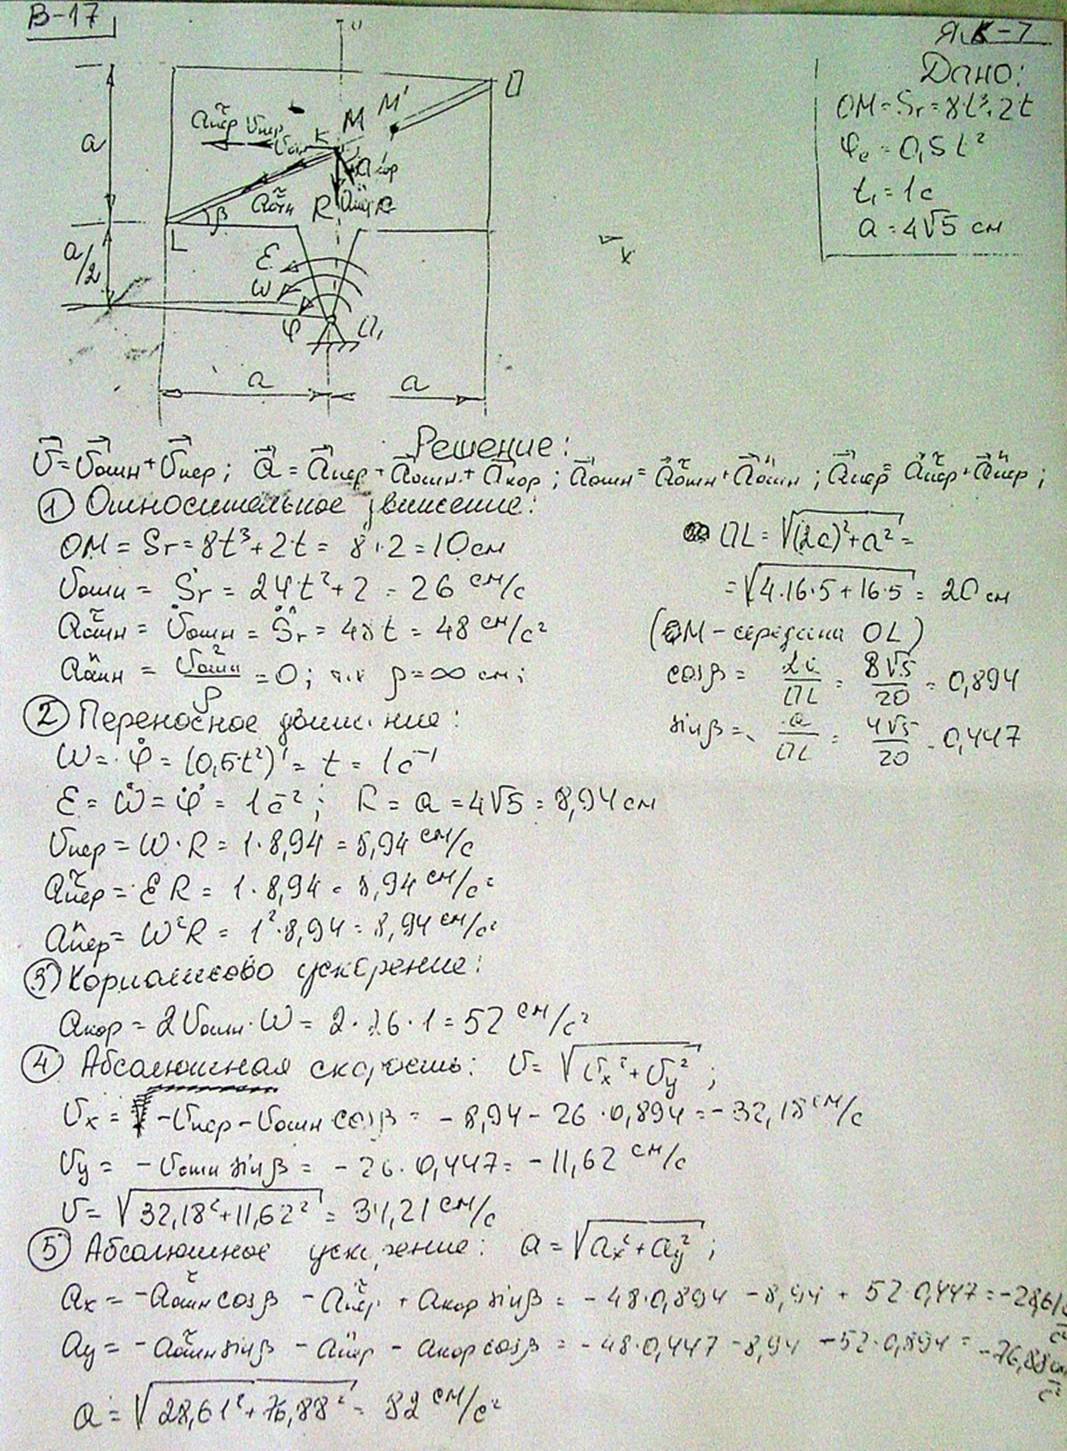 В-17
ЯК-7
Дано:
OM = Sr = 8t³+2t
φe = 0,5t²
t₁ = 1с
a = 4√5 см
a
a/2
a
a
L
β
K
M
M'
O
R
O₁
ε
ω
φ
x
aпер Vпер
Vотн
aотн
aкор
Решение:
V = Vотн + Vпер ; a = aпер + aотн + aкор ; aотн = aᵗотн + aⁿотн ; aпер = aᵗпер + aⁿпер ;
① Относительное движение:
OM = Sr = 8t³ + 2t = 8+2 = 10 см
Vотн = Sr = 24t² + 2 = 26 см/с
aᵗотн = V̇отн = S̈r = 48t = 48 см/с²
aⁿотн = V²отн/ρ = 0; т.к ρ = ∞ см;
OL = √((2a)² + a²) =
= √(4·16·5 + 16·5) = 20 см
(M - середина OL)
cosβ = 2a/OL = 8√5/20 = 0,894
sinβ = a/OL = 4√5/20 = 0,447
② Переносное движение:
ω = φ̇ = (0,5t²)' = t = 1 с⁻¹
ε = ω̇ = φ̈ = 1 с⁻² ; R = a = 4√5 = 8,94 см
Vпер = ω·R = 1·8,94 = 8,94 см/с
aᵗпер = εR = 1·8,94 = 8,94 см/с²
aⁿпер = ω²R = 1²·8,94 = 8,94 см/с²
③ Кориолисово ускорение:
aкор = 2Vотн·ω = 2·26·1 = 52 см/с²
④ Абсолютная скорость: V = √(Vx² + Vy²) ;
Vx = -Vпер - Vотн cosβ = -8,94 - 26·0,894 = -32,18 см/с
Vy = -Vотн sinβ = -26·0,447 = -11,62 см/с
V = √(32,18² + 11,62²) = 34,21 см/с
⑤ Абсолютное ускорение: a = √(ax² + ay²) ;
ax = -aᵗотн cosβ - aᵗпер + aкор sinβ = -48·0,894 - 8,94 + 52·0,447 = -28,61 с²
ay = -aᵗотн sinβ - aⁿпер - aкор cosβ = -48·0,447 - 8,94 - 52·0,894 = -76,88 см/с²
a = √(28,61² + 76,88²) = 82 см/с²